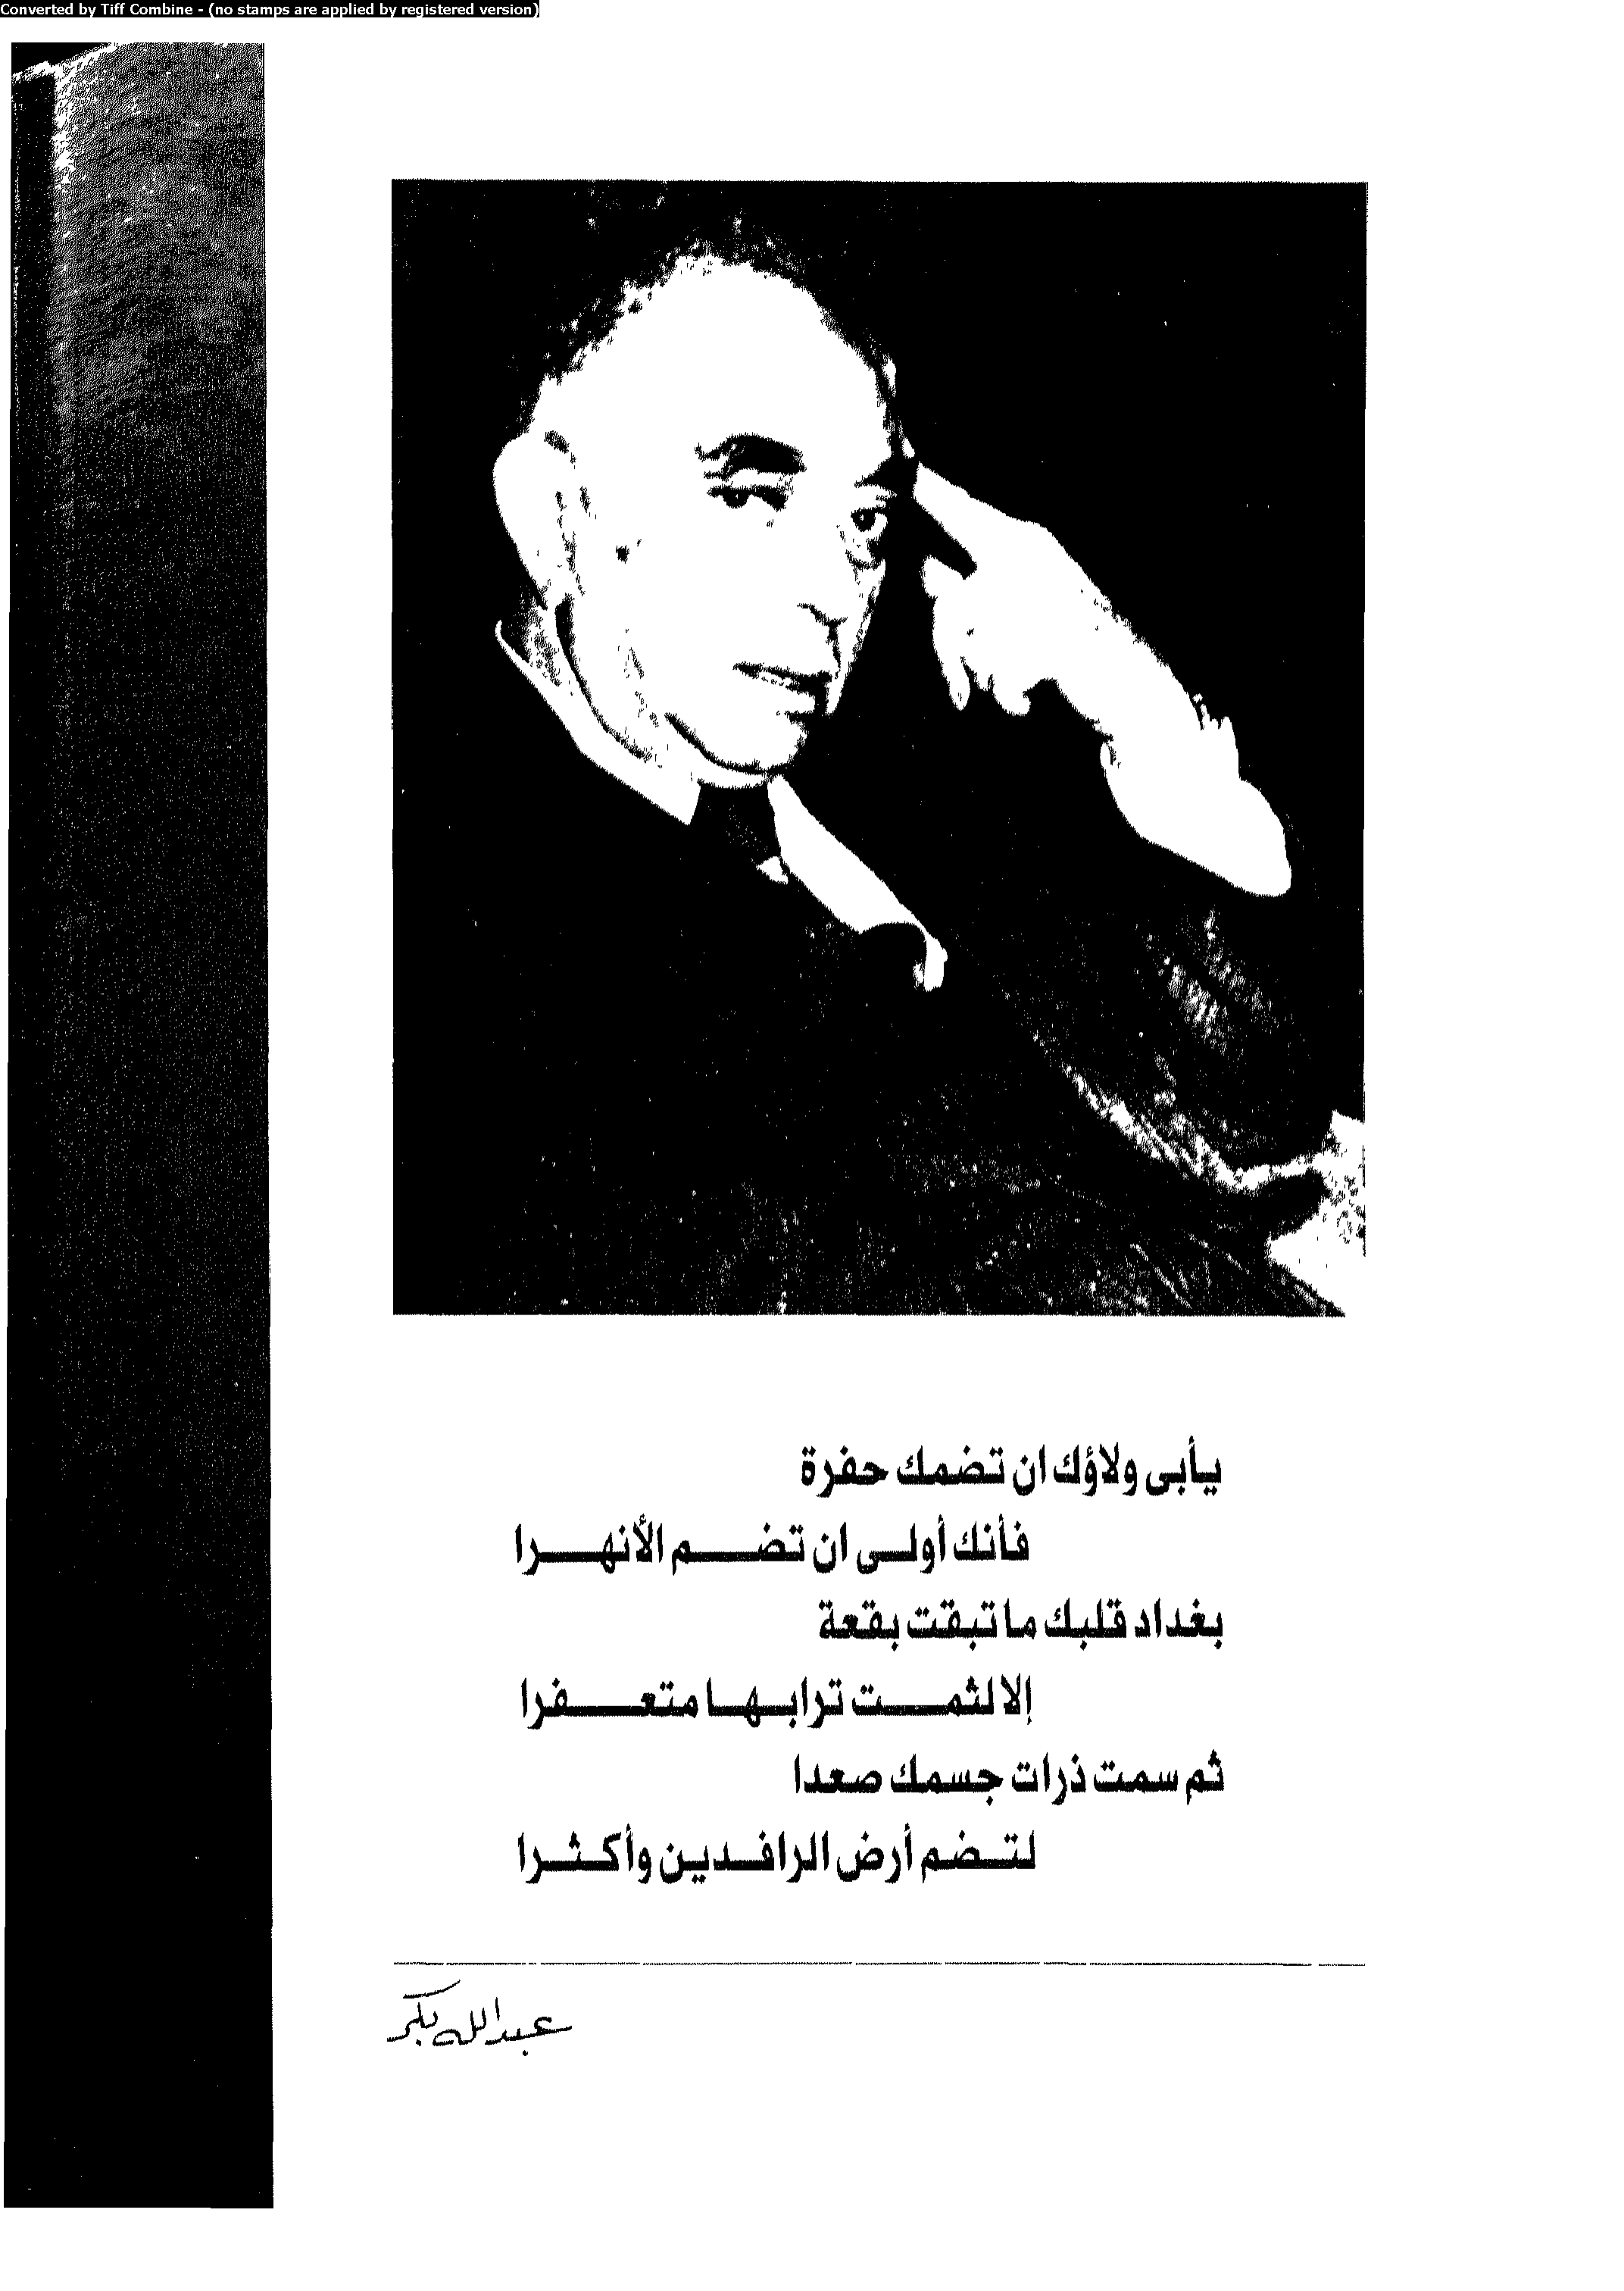 Converted by Tiff Combine - (no stamps are applied by registered version)
يأبى ولاؤك ان تضمك حفرة
فأنك أولى ان تضم الأنهرا
بغداد قلبك ما تبقت بقعة
إلا لثمت ترابها متعفرا
ثم سمت ذرات جسمك صعدا
لتضم أرض الرافدين وأكثرا
عبدالله بكر